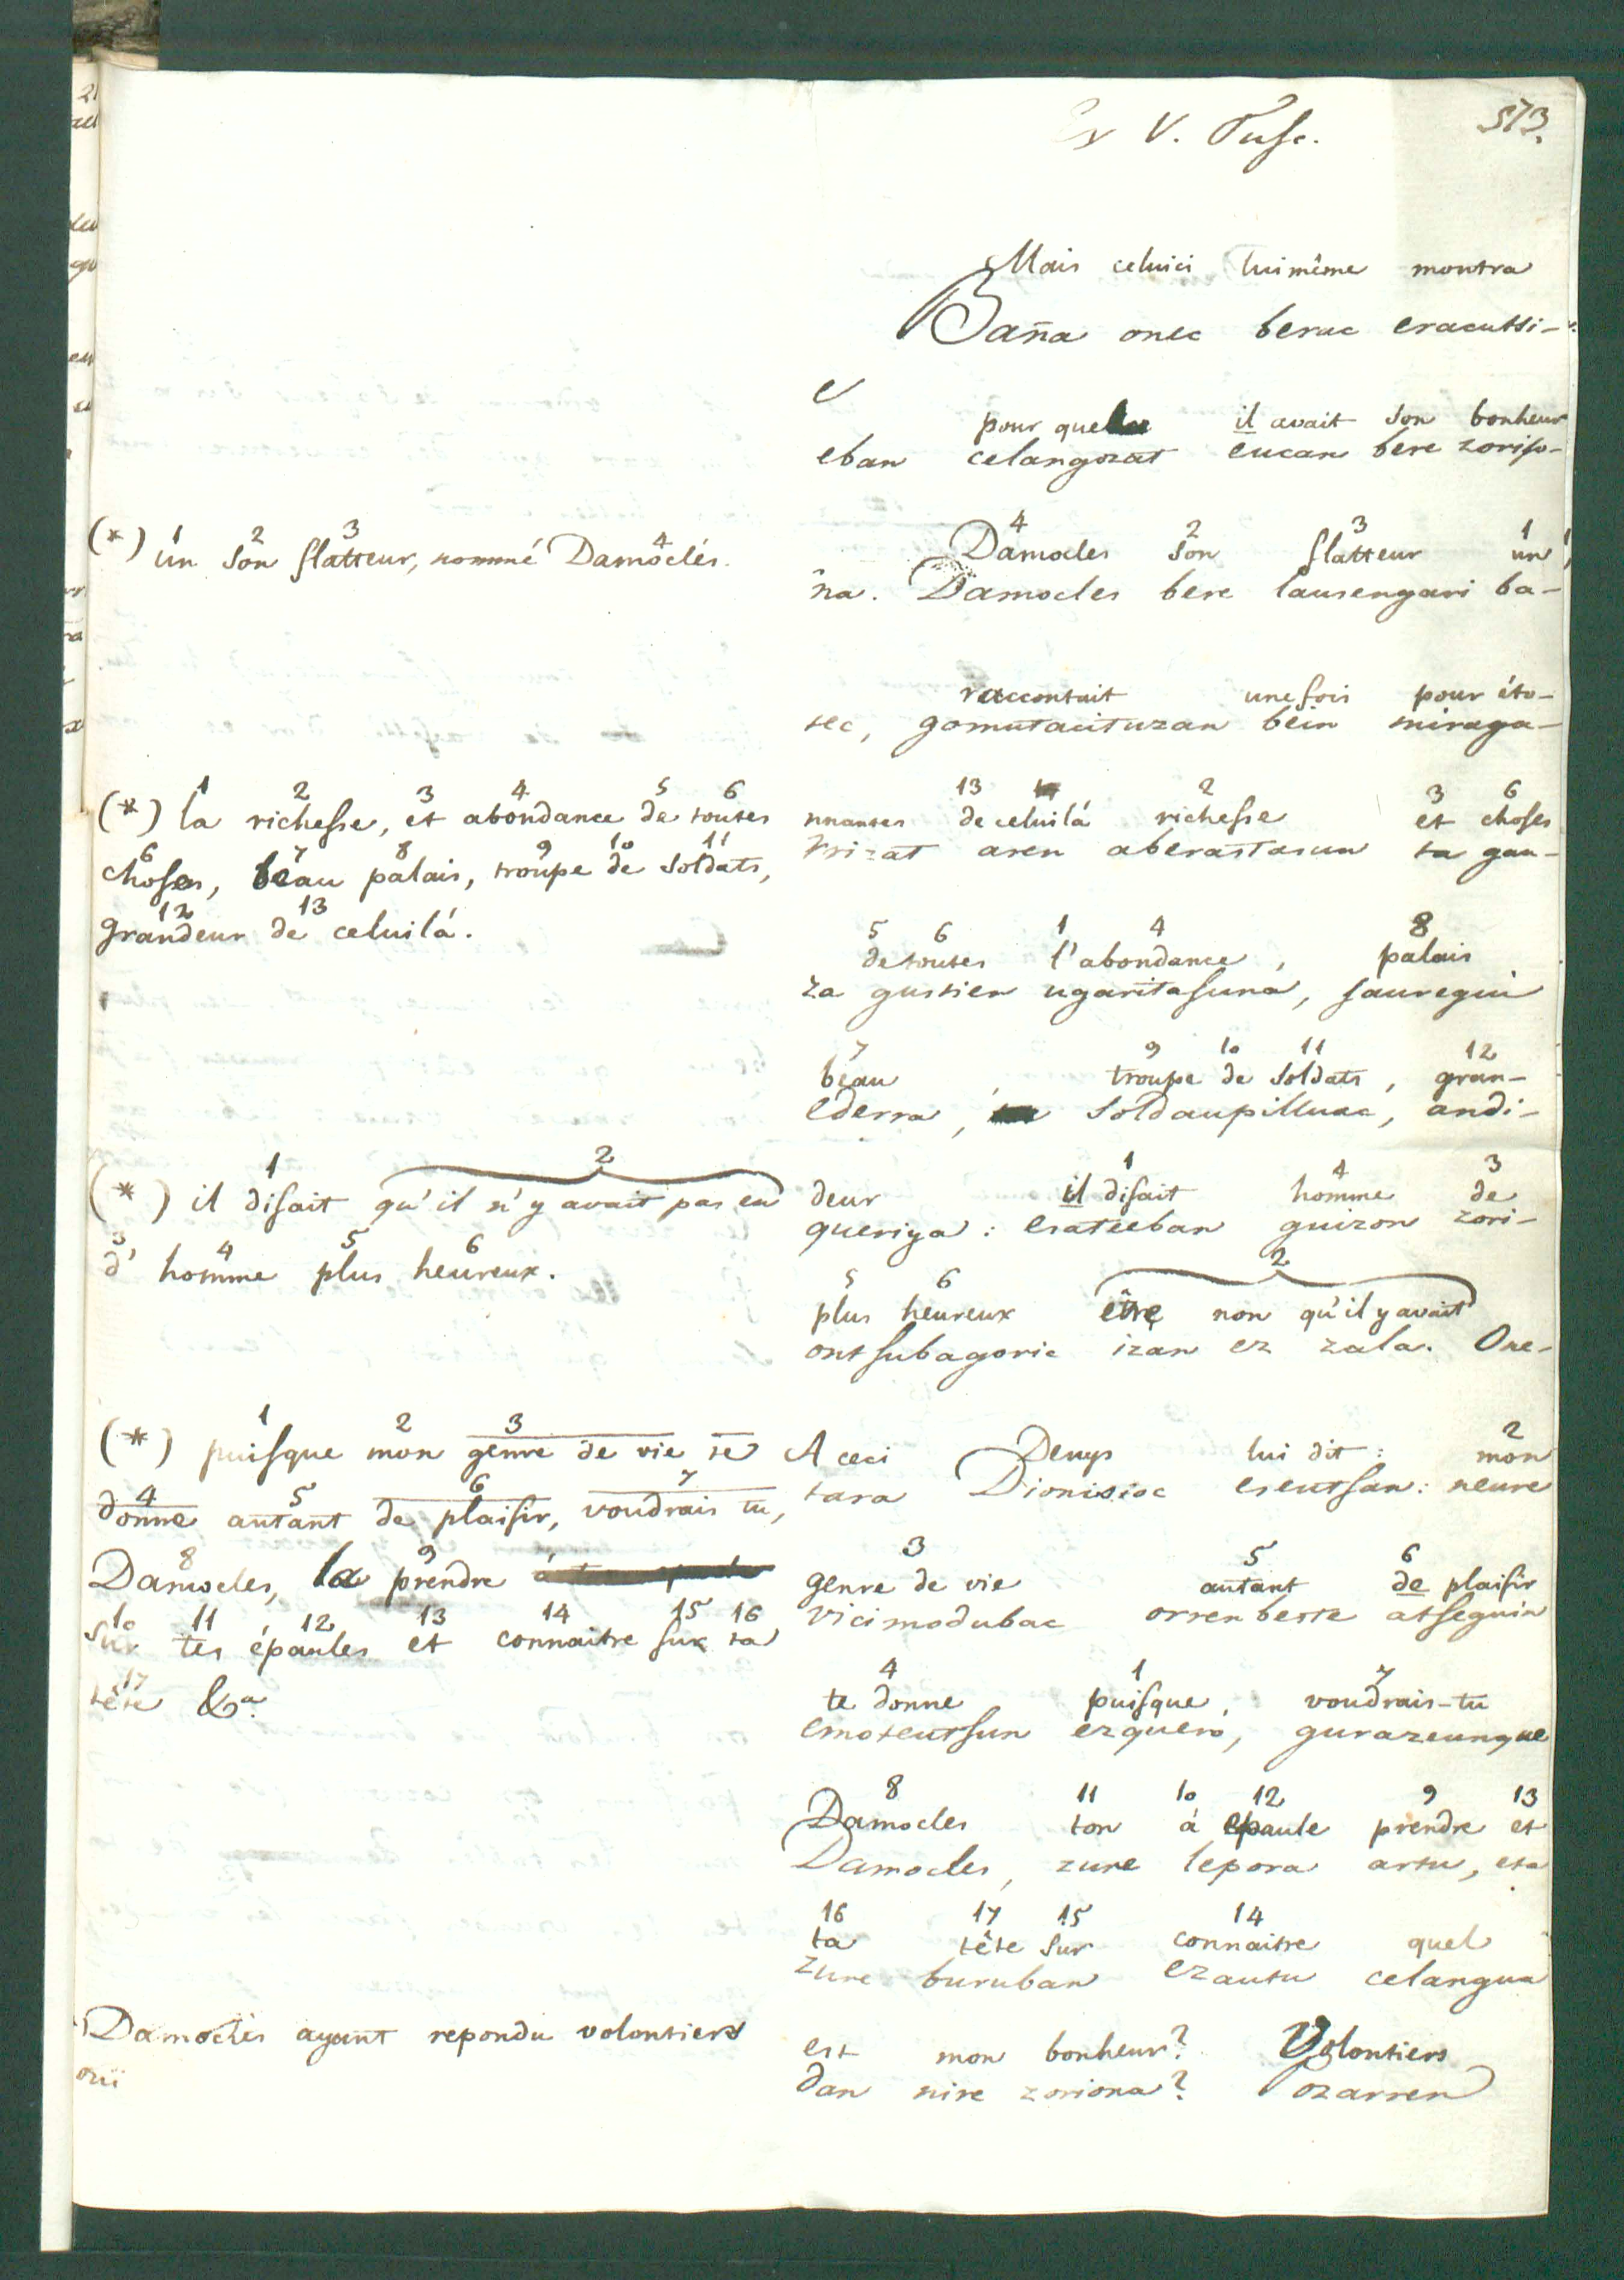 Ex V. Tusc.
513.
Mais celuici luimême montra
Baña onec berac eracutsi-
pour quel il avait son bonheur
eban celangozat eucan bere zoriso-
(*) un son flatteur, nommé Damoclés.
1 2 3 4
4 2 3 1
Damocles son flatteur un,
ña. Damocles bere lausengari ba-
raccontait unefois pour éto-
tec, gomutacituzan bein miraga-
(*) la richesse, et abondance de toutes
1 2 3 4 5 6
choses, beau palais, troupe de soldats,
6 7 8 9 10 11
grandeur de celuilá.
12 13
13 2 3 6
nnantes de celuilá richesse et choses
rrizat aren aberastasun ta gau-
5 6 1 4 8
de toutes l'abondance, palais
za gustien ugaritasuna, jauregui
7 9 10 11 12
beau, troupe de soldats, gran-
ederra, soldaupilluac, andi-
(*) il disait qu'il n'y avait pas eu
1 2
d'homme plus heureux.
3 4 5 6
1 4 3
deur il disait homme de
queriya: esateeban guizon zori-
5 6 2
plus heureux être non qu'il y avait
ontsubagoric izan ez zala. One-
(*) puisque mon genre de vie te
1 2 3
donne autant de plaisir, voudrais tu,
4 5 6 7
Damocles, la prendre
8 9
sur tes épaules et connaitre sur ta
10 11 12 13 14 15 16
tête &a.
17
2
A ceci Denys lui dit: mon
tara Dionisioc eseutsan: neure
3 5 6
genre de vie autant de plaisir
vicimodubac orrenbeste atseguin
4 1 7
te donne puisque, voudrais-tu
emoteutsun ezquero, gurazeunque
8 11 10 12 9 13
Damocles ton á epaule prendre et
Damocles, zure lepora artu, eta
16 17 15 14
ta tête sur connaitre quel
zure buruban ezautu celangua
Damoclès ayant repondu volontiers
oui
est mon bonheur? Volontiers
dan nire zoriona? Pozarren